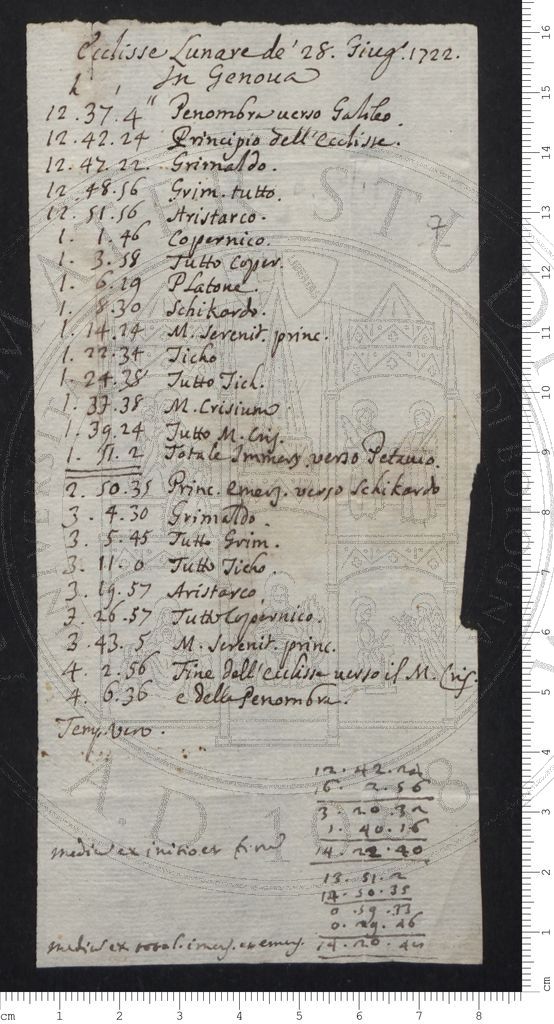 Ecclisse Lunare de' 28. Giug.º 1722.
In Genova
h ' "
12. 37. 4 Penombra verso Galileo.
12. 42. 24 Principio dell'Ecclisse.
12. 47. 22. Grimaldo.
12. 48. 56 Grim. tutto.
12. 51. 56 Aristarco.
1. 1. 46 Copernico.
1. 3. 58 Tutto Coper.
1. 6. 29 Platone.
1. 8. 30 Schikardo.
1. 14. 24 M. Serenit. princ.
1. 22. 34 Ticho
1. 24. 28 Tutto Tich.
1. 37. 38 M. Crisium
1. 39. 24 Tutto M. Cris.
1. 51. 2 Totale Immers. verso Petavio.
2. 50. 35 Princ. emers. verso Schikardo
3. 4. 30 Grimaldo.
3. 5. 45 Tutto Grim.
3. 11. 0 Tutto Ticho.
3. 19. 57 Aristarco
3. 26. 57 Tutto Copernico.
3. 43. 5 M. Serenit. princ.
4. 2. 56 Fine dell'ecclisse verso il M. Cris.
4. 6. 36 e della Penombra.
Temp. vero.
7
12. 42. 24
16. 2. 56
3. 20. 32
1. 40. 16
medius ex initio et fine 14. 22. 40
13. 51. 2
14. 50. 35
0. 59. 33
0. 29. 46
medius ex total. imers. et emers. 14. 20. 48
cm 1 2 3 4 5 6 7 8
cm 1 2 3 4 5 6 7 8 9 10 11 12 13 14 15 16